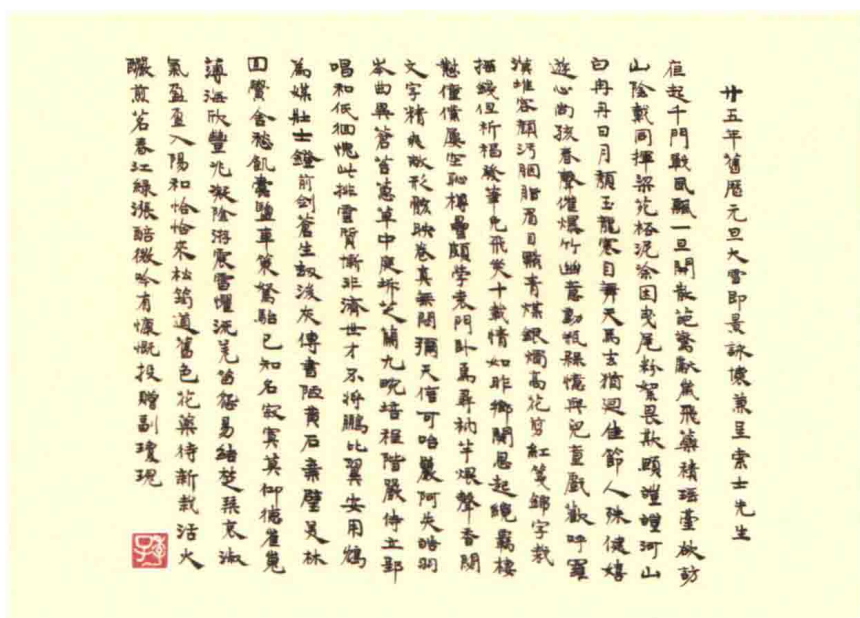 廿五年舊曆元旦大雪即景詠懷兼呈索士先生
起千門戰風飄一旦開散葩驚獻歲飛藥積瑤臺欲訪
山陰載同揮梁苑極泥塗困曳尾粉絮畏欺頤皚皚河山
白冉冉日月頹玉龍寒自舞天馬去猶迴佳節人殊健嬉
遊心尚孩春聲催爆竹幽意動瓶罍憶與兒童戲歡呼羅
堆容顏污胭脂眉目點青煤銀燭高花剪紅箋錦字裁
描錢但祈福發筆免飛災十載情如昨鄉關思起羈棲
愁僮僕屢空恥樽罍顛學袁門臥焉尋衲芋煨聲香關
文字精爽散形骸映卷真無悶彌天信可咍嚴阿失皓羽
岑曲異蒼苔蔥草中庭坼芝蘭九畹培程階嚴侍立郢
唱和低徊愧此排雲質慚非濟世才不將鵬比翼安用鶴
為媒壯士鐙前劍蒼生劫後灰傳書陋黃石棄璧吳林
回鬢含愁飢鹽車策駑駘已知名寂寞莫仰德崔嵬
薄海欣豐兆凝陰洊震雷懼流羌笛極易緒楚琴哀淑
氣盈盈入陽和恰恰來松筠道舊色花藥待新栽活火
釅煎茗春江綠漲醅微吟有慷慨投贈副瓊瑰